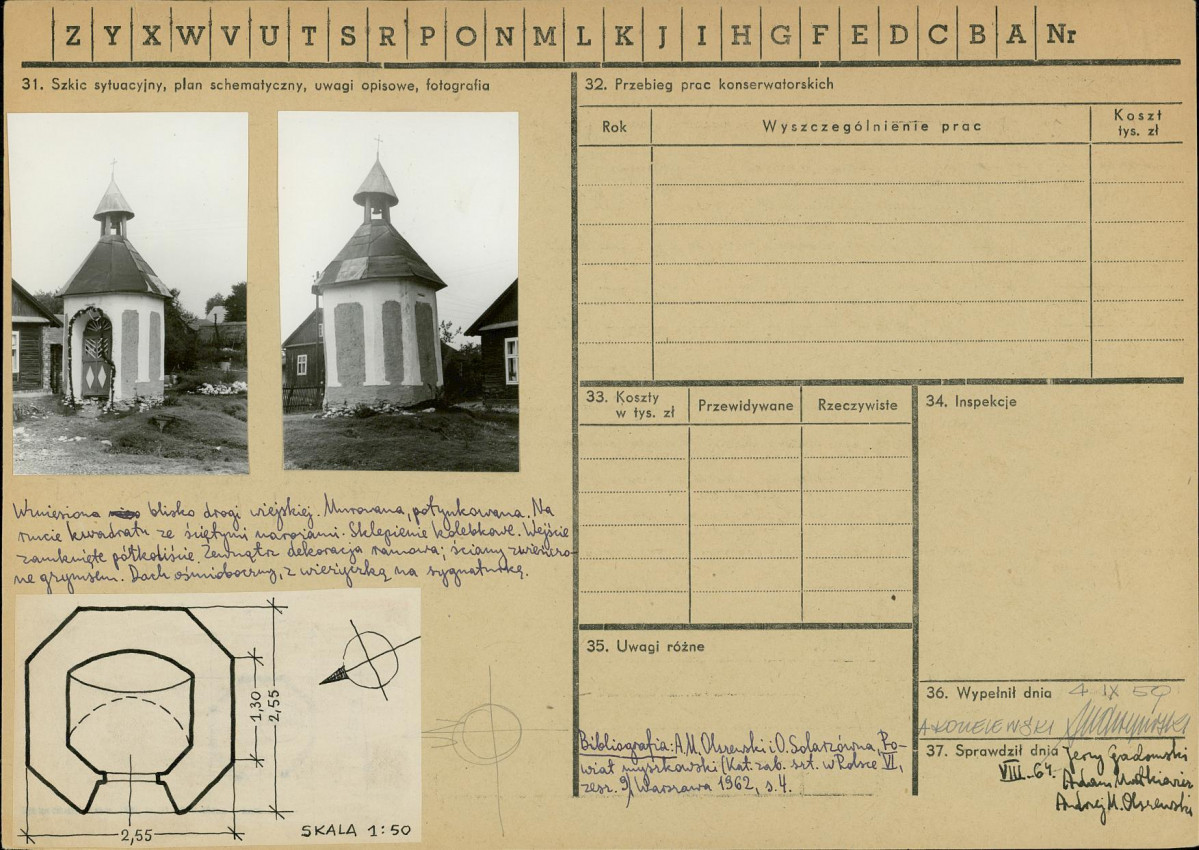 Z Y X W V U T S R P O N M L K J I H G F E D C B A Nr
31. Szkic sytuacyjny, plan schematyczny, uwagi opisowe, fotografia
Wzniesiona blisko drogi wiejskiej. Murowana, potynkowana. Na
rzucie kwadratu ze ściętymi narożami. Sklepienie kolebkowe. Wejście
zamknięte półkoliście. Zewnątrz dekoracja ramowa; ściany zwieńczo-
ne gzymsem. Dach ośmioboczny, z wieżyczką na sygnaturkę.
1,30
2,55
2,55
SKALA 1:50
32. Przebieg prac konserwatorskich
Rok
Wyszczególnienie prac
Koszt
tys. zł
33. Koszty
w tys. zł
Przewidywane
Rzeczywiste
34. Inspekcje
35. Uwagi różne
Bibliografia: A.M. Olszewski i O. Solarzówna, Po-
wiat myszkowski (Kat. zab. szt. w Polsce VI,
zesz. 9) Warszawa 1962, s. 4.
36. Wypełnił dnia 4 IX 59
37. Sprawdził dnia Jerzy Gadomski
VIII.64. Adam Małkiewicz
Andrzej M. Olszewski